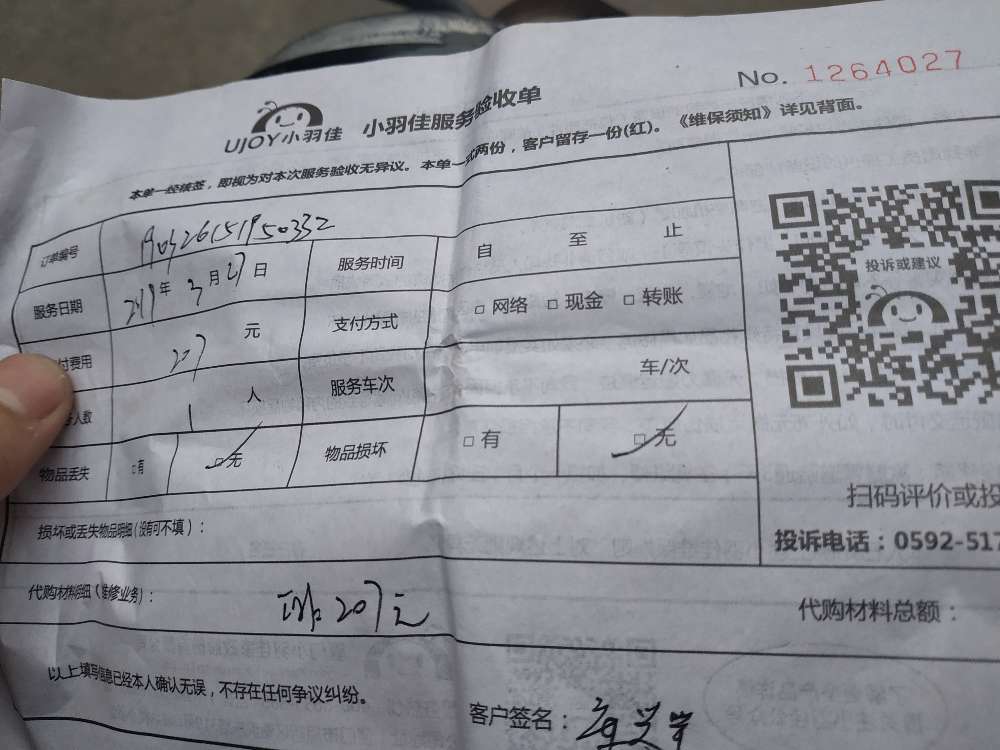 No. 1264027
UJOY小羽佳 小羽佳服务验收单
本单一经核签，即视为对本次服务验收无异议。本单一式两份，客户留存一份(红)。《维保须知》详见背面。
订单编号
服务时间 自 至 止
服务日期 年 3月27日
付费用 207 元 支付方式 □网络 □现金 □转账
人数 1 人 服务车次 车/次
物品丢失 □有 □无 物品损坏 □有 □无
投诉或建议
扫码评价或投
投诉电话：0592-517
损坏或丢失物品明细(没有可不填)：
代购材料明细(维修业务)： 207元 代购材料总额：
以上填写信息已经本人确认无误，不存在任何争议纠纷。
客户签名：